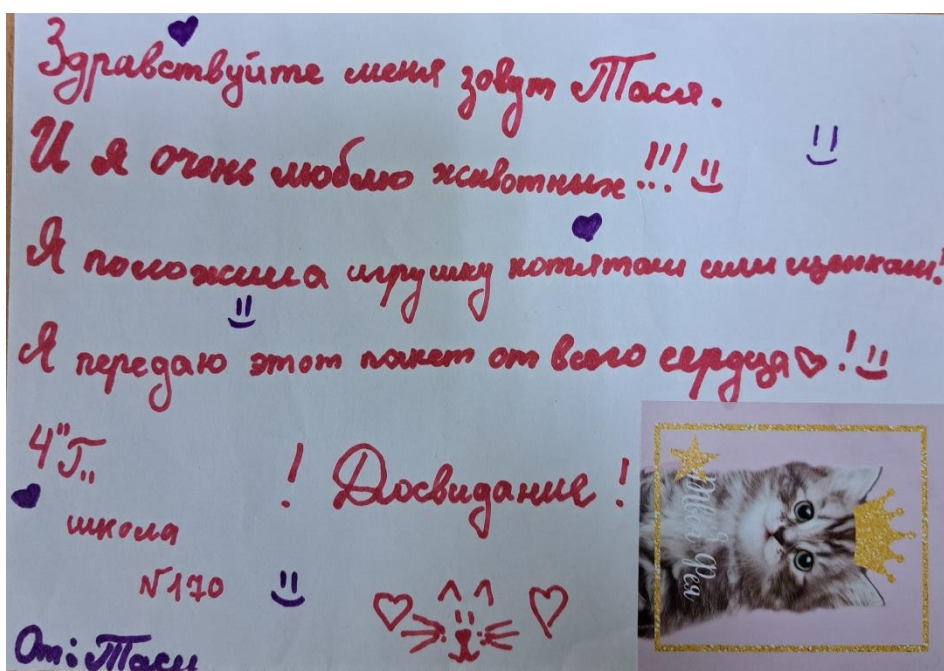 Здравствуйте меня зовут Тася.
И я очень люблю животных!!!
Я положила игрушку котятам или щенкам!
Я передаю этот пакет от всего сердца!
4"Г„
! Досвидание!
школа
N170
От: Таси
Твоя Фея